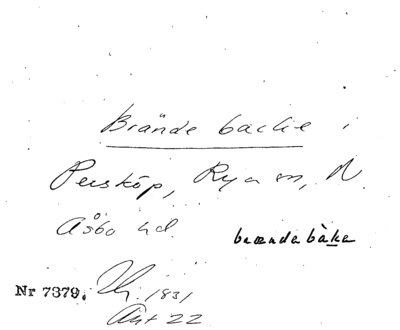 Brände backe i
Persköp, Rya sn, N.
Åsbo hd.
brændabàka
Nr 7379. 1831
Akt 22